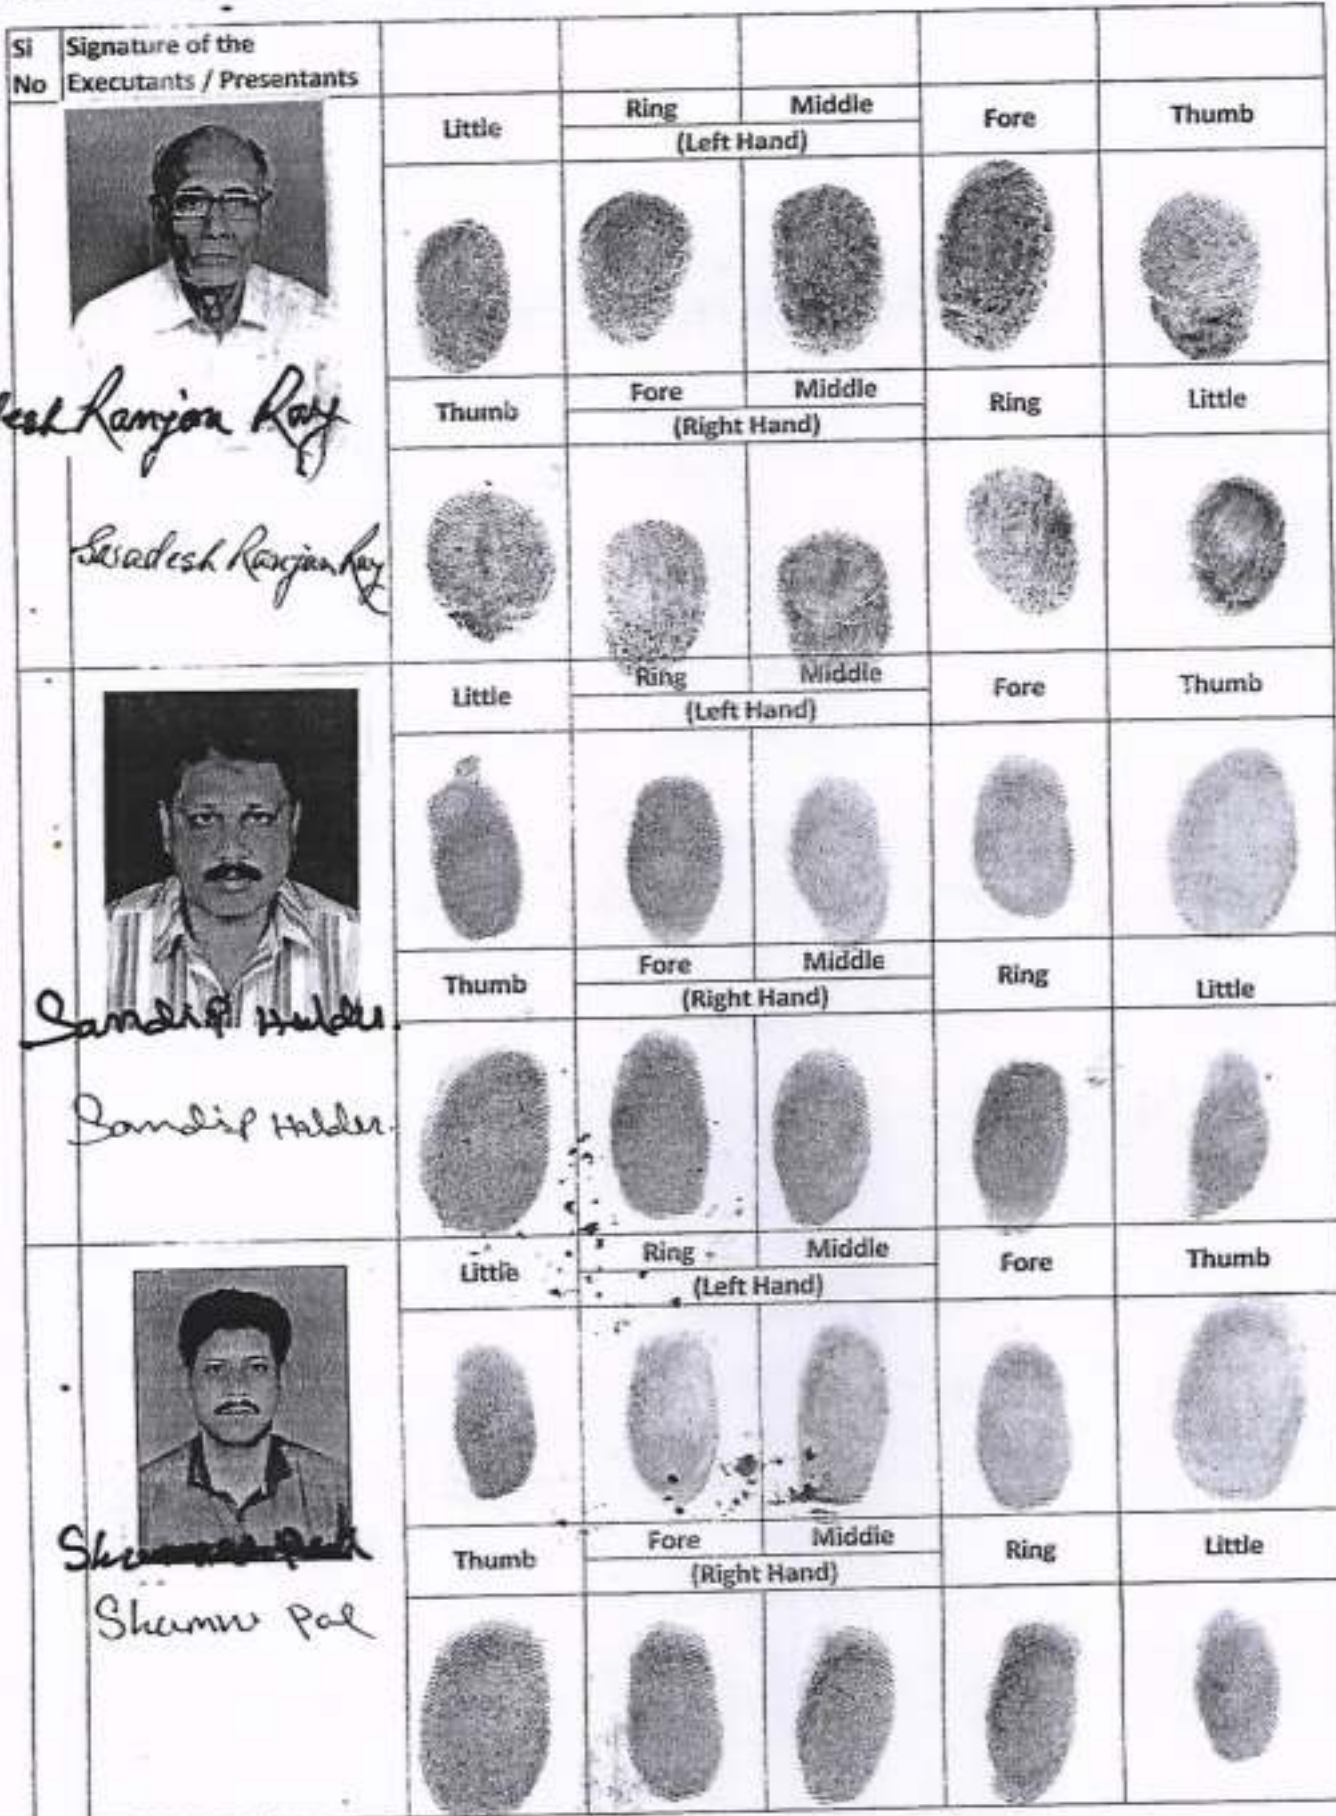 Si No Signature of the Executants / Presentants
Little Ring Middle Fore Thumb
(Left Hand)
Ranjan Ray
Thumb Fore Middle Ring Little
(Right Hand)
Swadesh Ranjan Ray
Little Ring Middle Fore Thumb
(Left Hand)
Thumb Fore Middle Ring Little
(Right Hand)
Sandip Halder.
Sandip Halder.
Little Ring Middle Fore Thumb
(Left Hand)
Thumb Fore Middle Ring Little
(Right Hand)
Pal